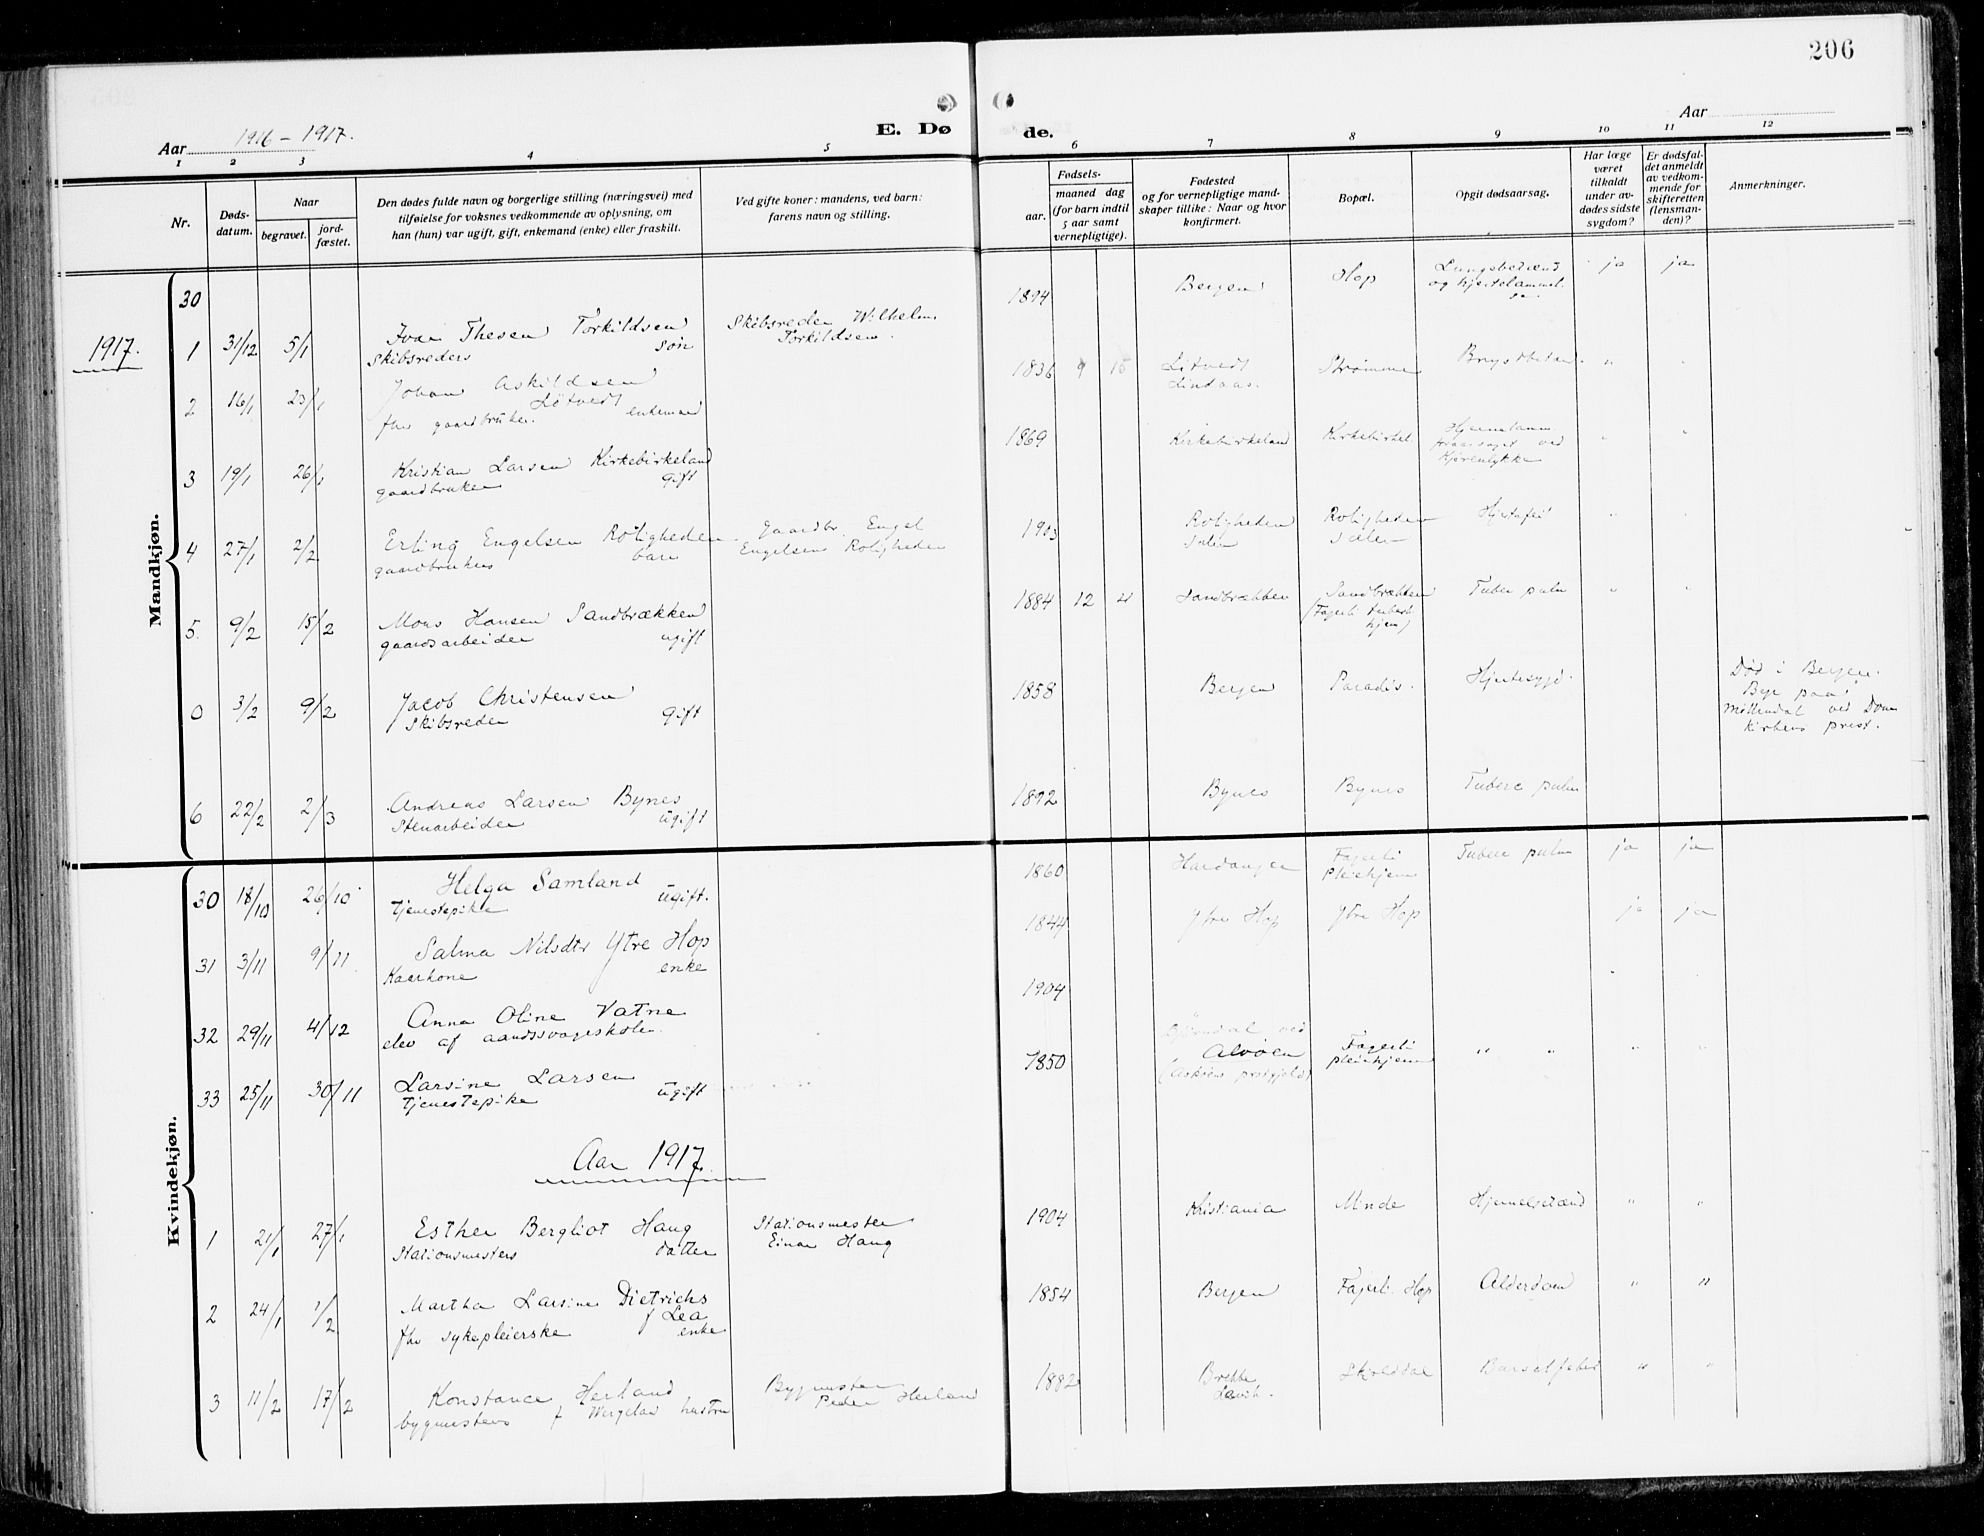 206
Aar 1916 – 1917.
E. Dø
de.
Aar
1 2 3 4 5 6 7 8 9 10 11 12
Nr.
Døds-
datum.
Naar
begravet.
jord-
fæstet.
Den dødes fulde navn og borgerlige stilling (næringsvei) med
tilføielse for voksnes vedkommende av oplysning, om
han (hun) var ugift, gift, enkemand (enke) eller fraskilt.
Ved gifte koner: mandens, ved barn:
farens navn og stilling.
Fødsels-
aar.
maaned dag
(for barn indtil
5 aar samt
vernepligtige).
Fødested
og for vernepligtige mand-
skaper tillike: Naar og hvor
konfirmert.
Bopæl.
Opgit dødsaarsag.
Har læge
været
tilkaldt
under av-
dødes sidste
sygdom?
Er dødsfal-
det anmeldt
av vedkom-
mende for
skifteretten
(lensman-
den)?
Anmerkninger.
Mandkjøn.
30
1917.
1 31/12 5/1 Ivar Thesen Torkildsen
Skibsreders søn
Skibsreder Wilhelm
Torkildsen.
1894 Bergen Hop Lungebetænd
og hjertelammel
se. ja ja
2 16/1 23/1 Johan Askildsen
Løtvedt
fhv gaardbruker. enkemand
1836 9 15 Løtvedt
Lindaas. Strømme "
3 19/1 26/1 Kristian Larsen Kirkebirkeland
gaardbruker gift
1869 Kirkebirkeland Kirkebirkel. Hjernelamm.
foraarsaget ved
Kjøreulykke " "
4 27/1 2/2 Erling Engelsen Roligheden
gaardbrukers barn
Gaardbr. Engel
Engelsen Roligheden
1903 Roligheden
Sælen Roligheden
Sælen Hjertefeil " "
5. 9/2 15/2 Mons Hansen Sandbrækken
gaardsarbeider ugift
1884 12 4 Sandbrækken Sandbrækken
(Fagerli tuberk
hjem) Tuber pulm " "
0 3/2 9/2 Jacob Christensen
Skibsreder gift
1858 Bergen Paradis. Hjertesygd.
Død i Bergen.
Møllendal ved Dom
kirkens prest.
6 22/2 2/3 Andreas Larsen Bynes
Stenarbeider ugift
1892 Bynes Bynes Tuberc pulm
Kvindekjøn.
30 18/10 26/10 Helga Samland
tjenestepike ugift.
1860 Hardanger Fagerli
pleiehjem Tuberc pulm ja ja
31 3/11 9/11 Salma Nilsdtr Ytre Hop
Kaarkone enke
1844 Ytre Hop Ytre Hop ja ja
32 29/11 4/12 Anna Oline Vatne
elev af aandssvageskolen.
1904
33 25/11 30/11 Larsine Larsen
tjenestepike ugift
1850 ved
Alvøen
(Askøens prestgjeld) Fagerli
pleiehjem " " " "
Aar 1917.
1 21/1 27/1 Esther Bergliot Haug
Stationsmesters datter
Stationsmester
Einar Haug
1904 Kristiania Minde Hjernebetænd " "
2 24/1 1/2 Martha Larsine Dietrichs
f Lea
fhv sykepleierske enke
1854 Bergen Fagerli Hop Alderdom " "
3 11/2 17/2 Konstance Herland
bygmesters f Wergeland hustru
Bygmester
Peder Herland
1882 Brekke
Lavik. Skjolddal Barselfeber " "